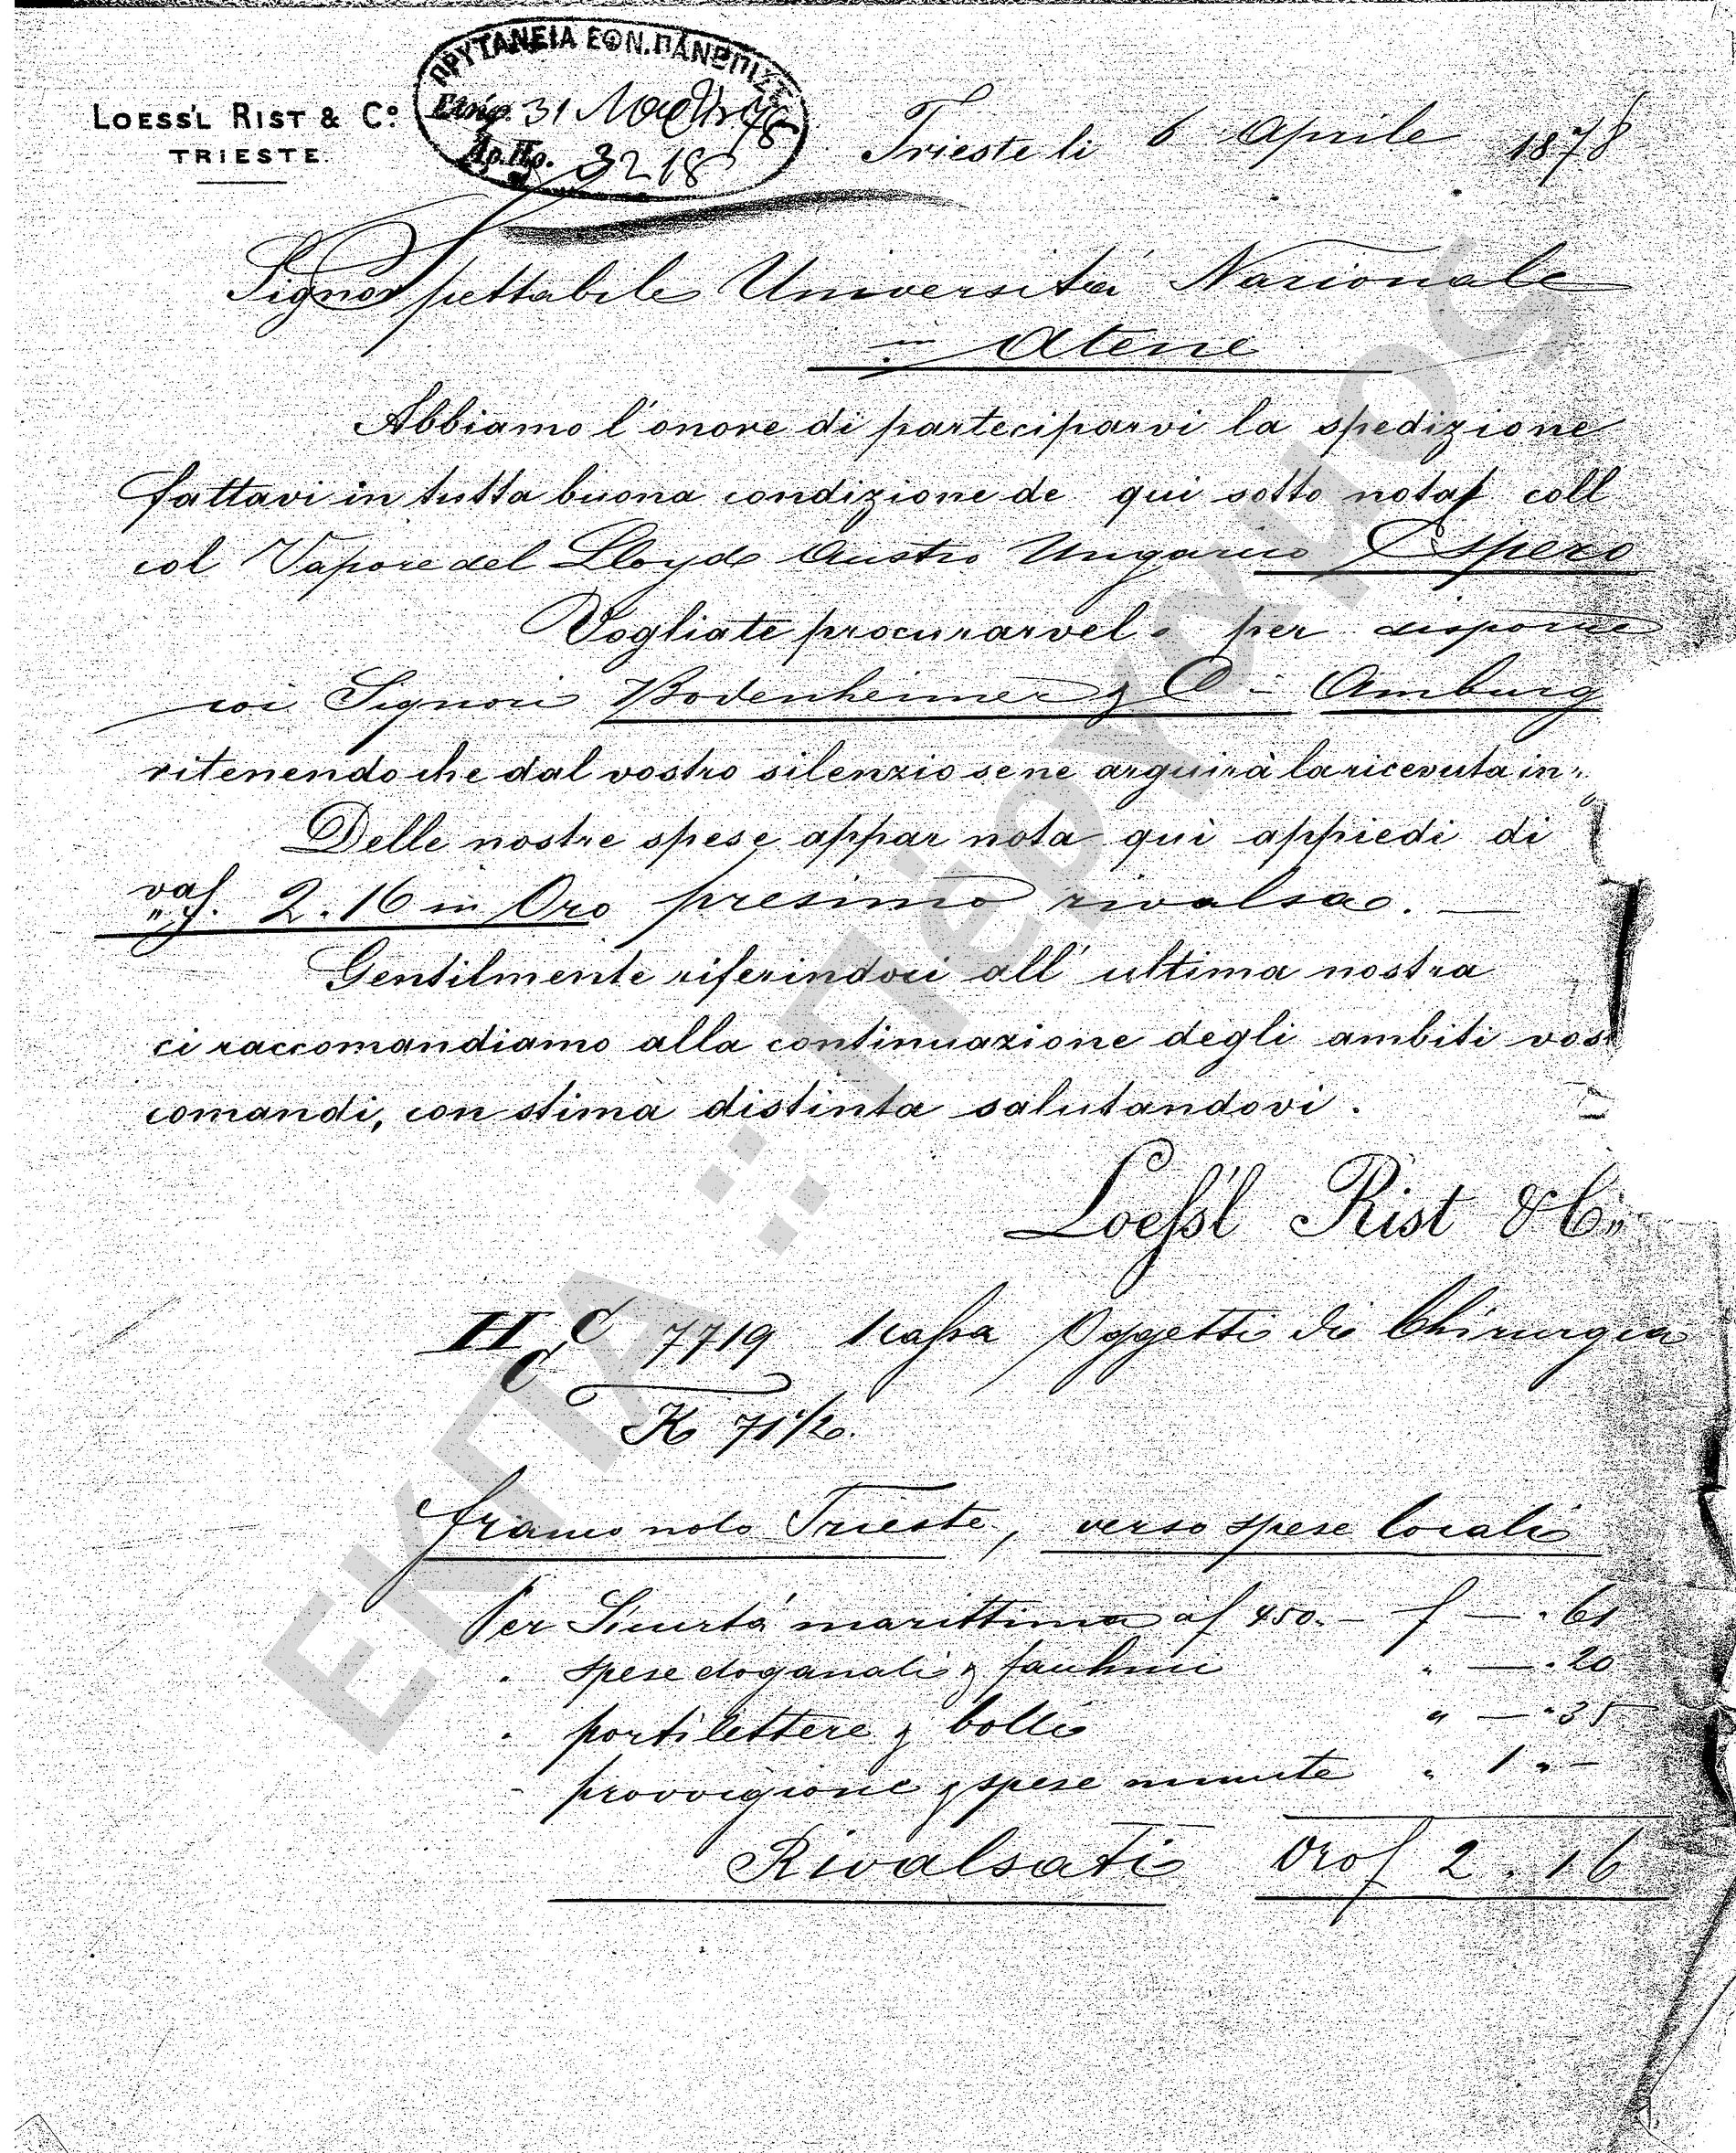 LOESS'L RIST & Cº.
TRIESTE.
ΠΡΥΤΑΝΕΙΑ ΕΘΝ. ΠΑΝΕΠΙΣΤ.
31 78
Αρ. Πρ. 3218
Trieste li 6 Aprile 1878
Spettabile Universitá Nazionale
in Atene
Abbiamo l'onore di parteciparvi la spedizione
fattavi in tutta buona condizione de qui sotto notat coll
col Vapore del Lloyd Austro Ungarico Espero
Vogliate procurarvel. per disporne
coi Signori Bodenheimer & Cº - Amburg
ritenendo che dal vostro silenzio se ne arguirà la ricevuta in
Delle nostre spese appar nota qui appiedi di
vaf. 2.16 in Oro presimo rivalsa. —
Gentilmente riferindoci all' ultima nostra
ci raccomandiamo alla continuazione degli ambiti vost
comandi, con stima distinta salutandovi.
Loess'l Rist & Cº
H C C 7719 1 cassa Oggetti di Chirurgia
K 71 1/2.
franco nolo Trieste, verso spese locali
Per Sicurtá marittima af 450.- f — . 61
" spese doganali & facchini " — . 20
" porti lettere & bolli " — . 35
" provvigione & spese minute " 1 . —
Rivalsati Oro f 2 . 16
ΕΚΠΑ :: Πέργαμος